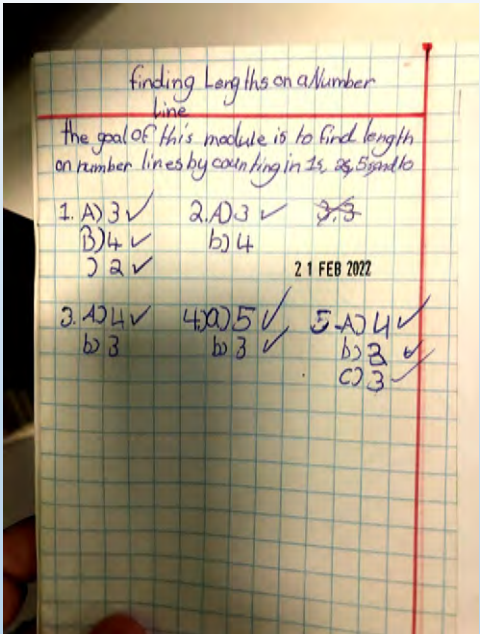 finding Lengths on a Number
Line
the goal of this module is to find length
on number lines by counting in 1s, 2s, 5s and 10
1. A) 3 ✓ 2. A) 3 ✓
B) 4 ✓ b) 4
) 2 ✓
21 FEB 2022
3. A) 4 ✓ 4) a) 5 ✓ 5. A) 4 ✓
b) 3 b) 3 ✓ b) 3 ✓
c) 3 ✓